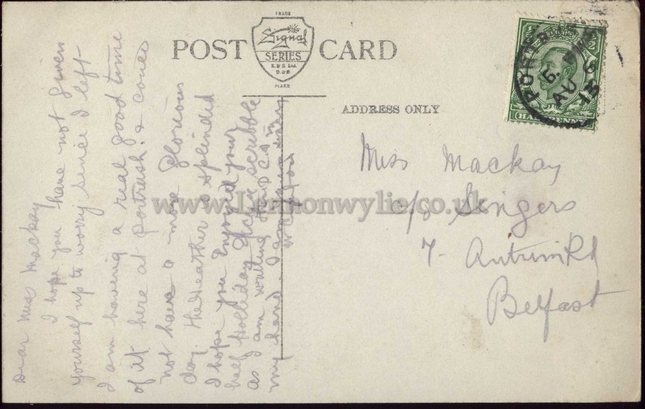 POST CARD
TRADE
Signal
SERIES
E. & S. Ltd.
DUB
MARK
ADDRESS ONLY
PORTR
AU 6
13
HALFPENNY
Miss Mackay
c/o Singers
7 Antrim Rd
Belfast
Dear Miss Mackay
I hope you have not given
yourself up to worry since I left
I am having a real good time
of it here at Portrush. & could
not have a more glorious
day the weather is splendid
I hope you Enjoyed your
half holliday Excuse scribble
as I am writing this P.C. on
my hand
www.Lennonwylie.co.uk